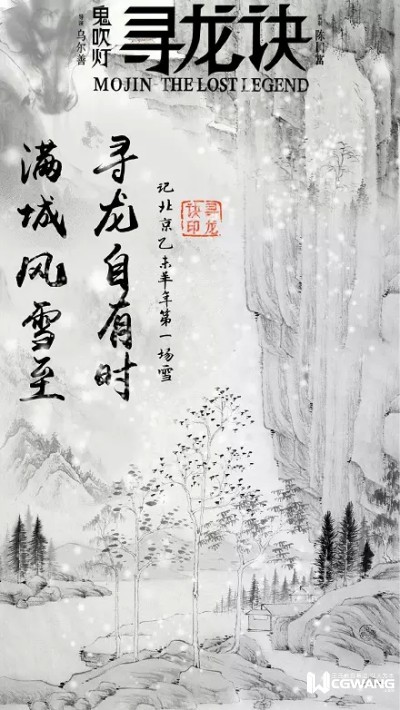 鬼吹灯
寻龙诀
导演 乌尔善
监制 陈国富
MOJIN-THE LOST LEGEND
寻龙自有时
满城风雪至
记北京乙未羊年第一场雪
寻龙
诀印
CGWANG